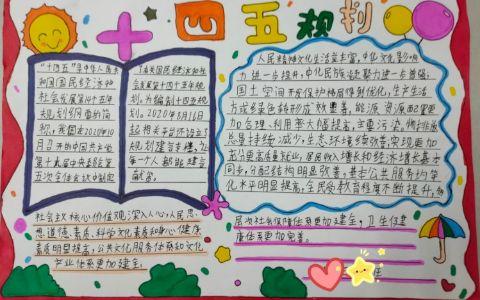 十四五规划
"十四五"是中华人民共
和国国民经济和
社会发展第十四个五年
规划纲要的简
称,我国在2020年10月
召开的中国共产党
第十九届中央委员会第
五次全体会议中制定
规划,为编制十四五规
划,2020年8月16日
起相关部门还设立了
规划建言专栏,让
每一个人都能建言
献策。
人民精神文化生活日益丰富,中华文化影响
力进一步提升,中华民族凝聚力进一步增强,
国土空间开发保护格局得到优化,生产生活
方式绿色转型成效显著,能源资源配置更
加合理、利用率大幅提高,主要污染物排放
总量持续减少,生态环境持续改善,实现更加
充分更高质量就业,居民收入增长和经济增长基本
同步,分配结构明显改善,基本公共服务均等
化水平明显提高,全民受教育程度不断提升,
社会主义核心价值观深入人心,人民思
想道德素质、科学文化素质和身心健康
素质明显提高,公共文化服务体系和文化
产业体系更加健全。
层次社会保障体系更加健全,卫生健
康体系更加完善。